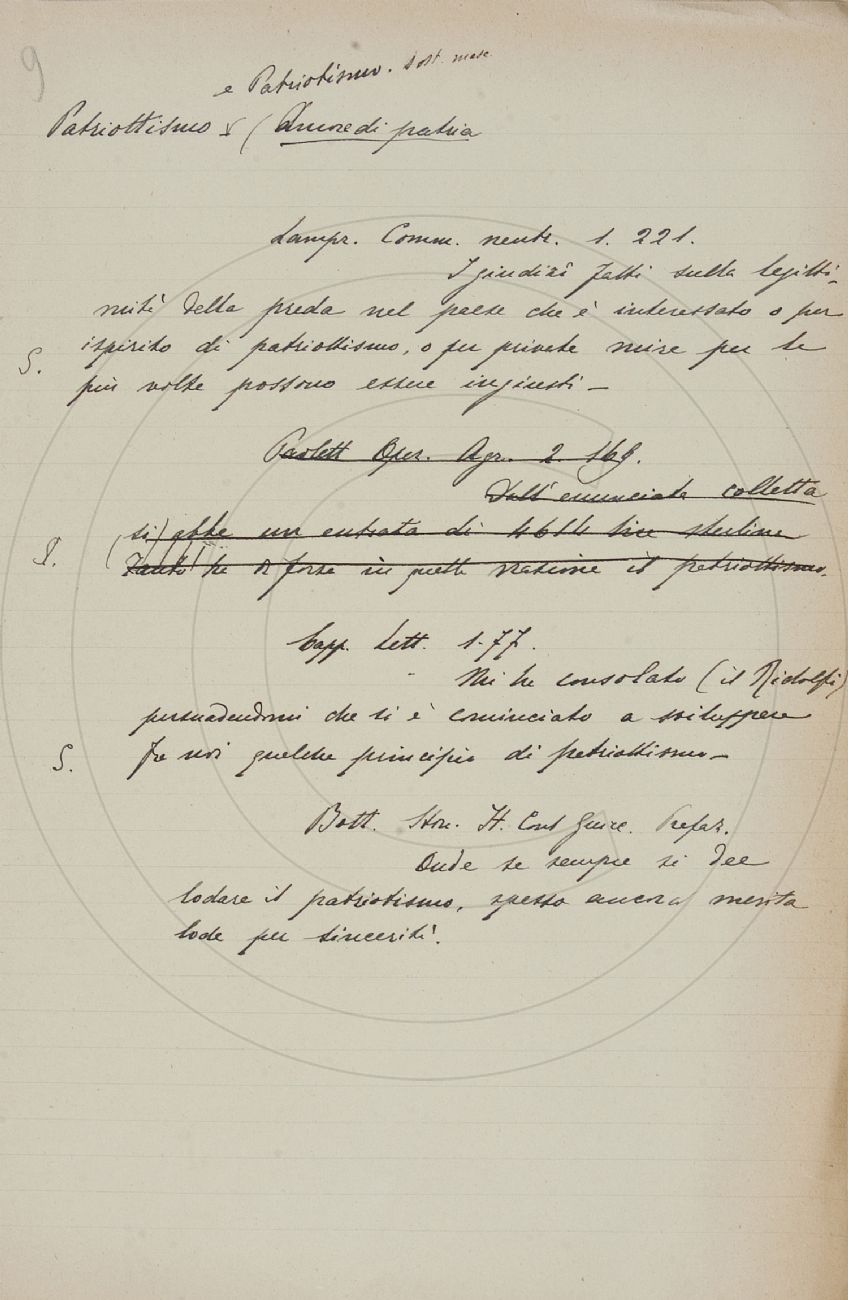 9
e Patriotismo. Sost. masc.
Patriottismo ( Amore di patria
Lampr. Comm. neutr. 1. 221.
I giudizî fatti sulla legitti-
mità della preda nel paese che è interessato o per
ispirito di patriottismo, o per private mire per le
S.
più volte possono essere ingiusti –
Paolett Oper. Agr. 2. 169.
Dall' enunciata colletta
(si) ebbe un entrata di 4614 lire sterline
S.
Tanto ha di forza in quella nazione il patriottismo.
Capp. Lett. 1. 77.
Mi ha consolato (il Ridolfi)
persuadendomi che si è cominciato a sviluppare
S.
fra noi qualche principio di patriottismo –
Bott. Stor. It. Cont Guicc. Prefaz.
Onde se sempre si dee
lodare il patriotismo, spesso ancora merita
lode per sincerità.